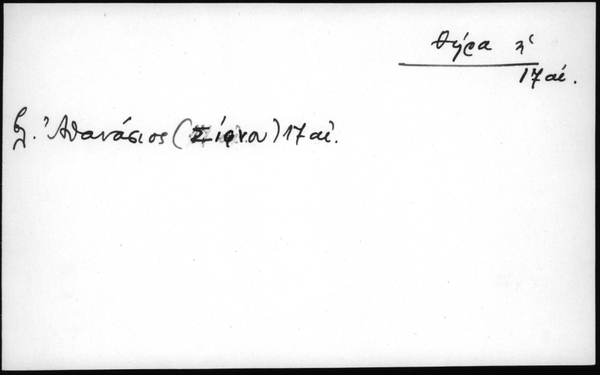 Θήρα
17 αἰ.
βλ. Ἀθανάσιος (Σίφνου) 17 αἰ.